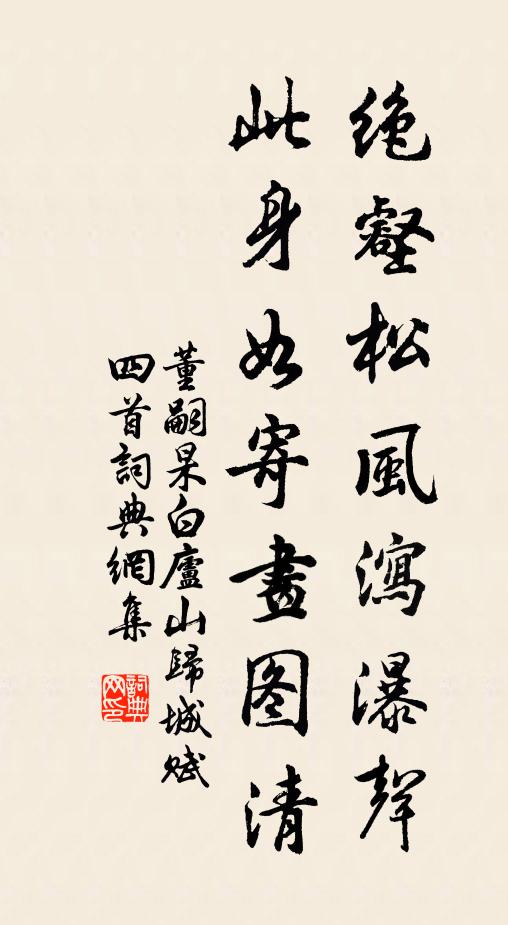 絶壑松風瀉瀑聲
此身如寄畫图清
董嗣杲白廬山歸城賦
四首詞典網集
詞典网印